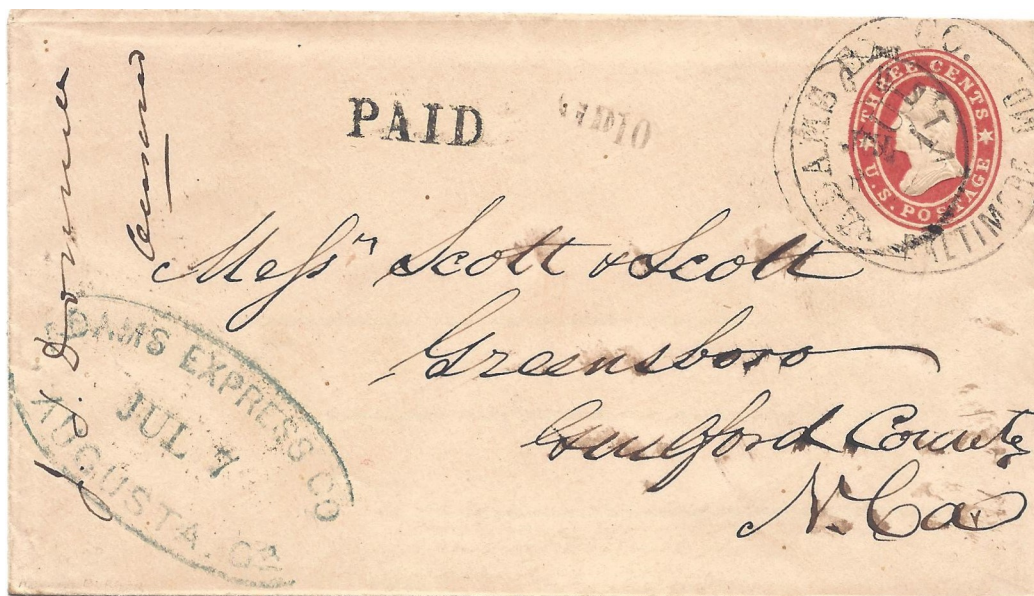 PAID
PAID 10
ADAMS EX. CO.
BALTIMORE MD
THREE CENTS
U.S. POSTAGE
Messrs Scott & Scott
Greensboro
Guilford County
N. Ca
ADAMS EXPRESS CO
JUL 7
AUGUSTA. Ga